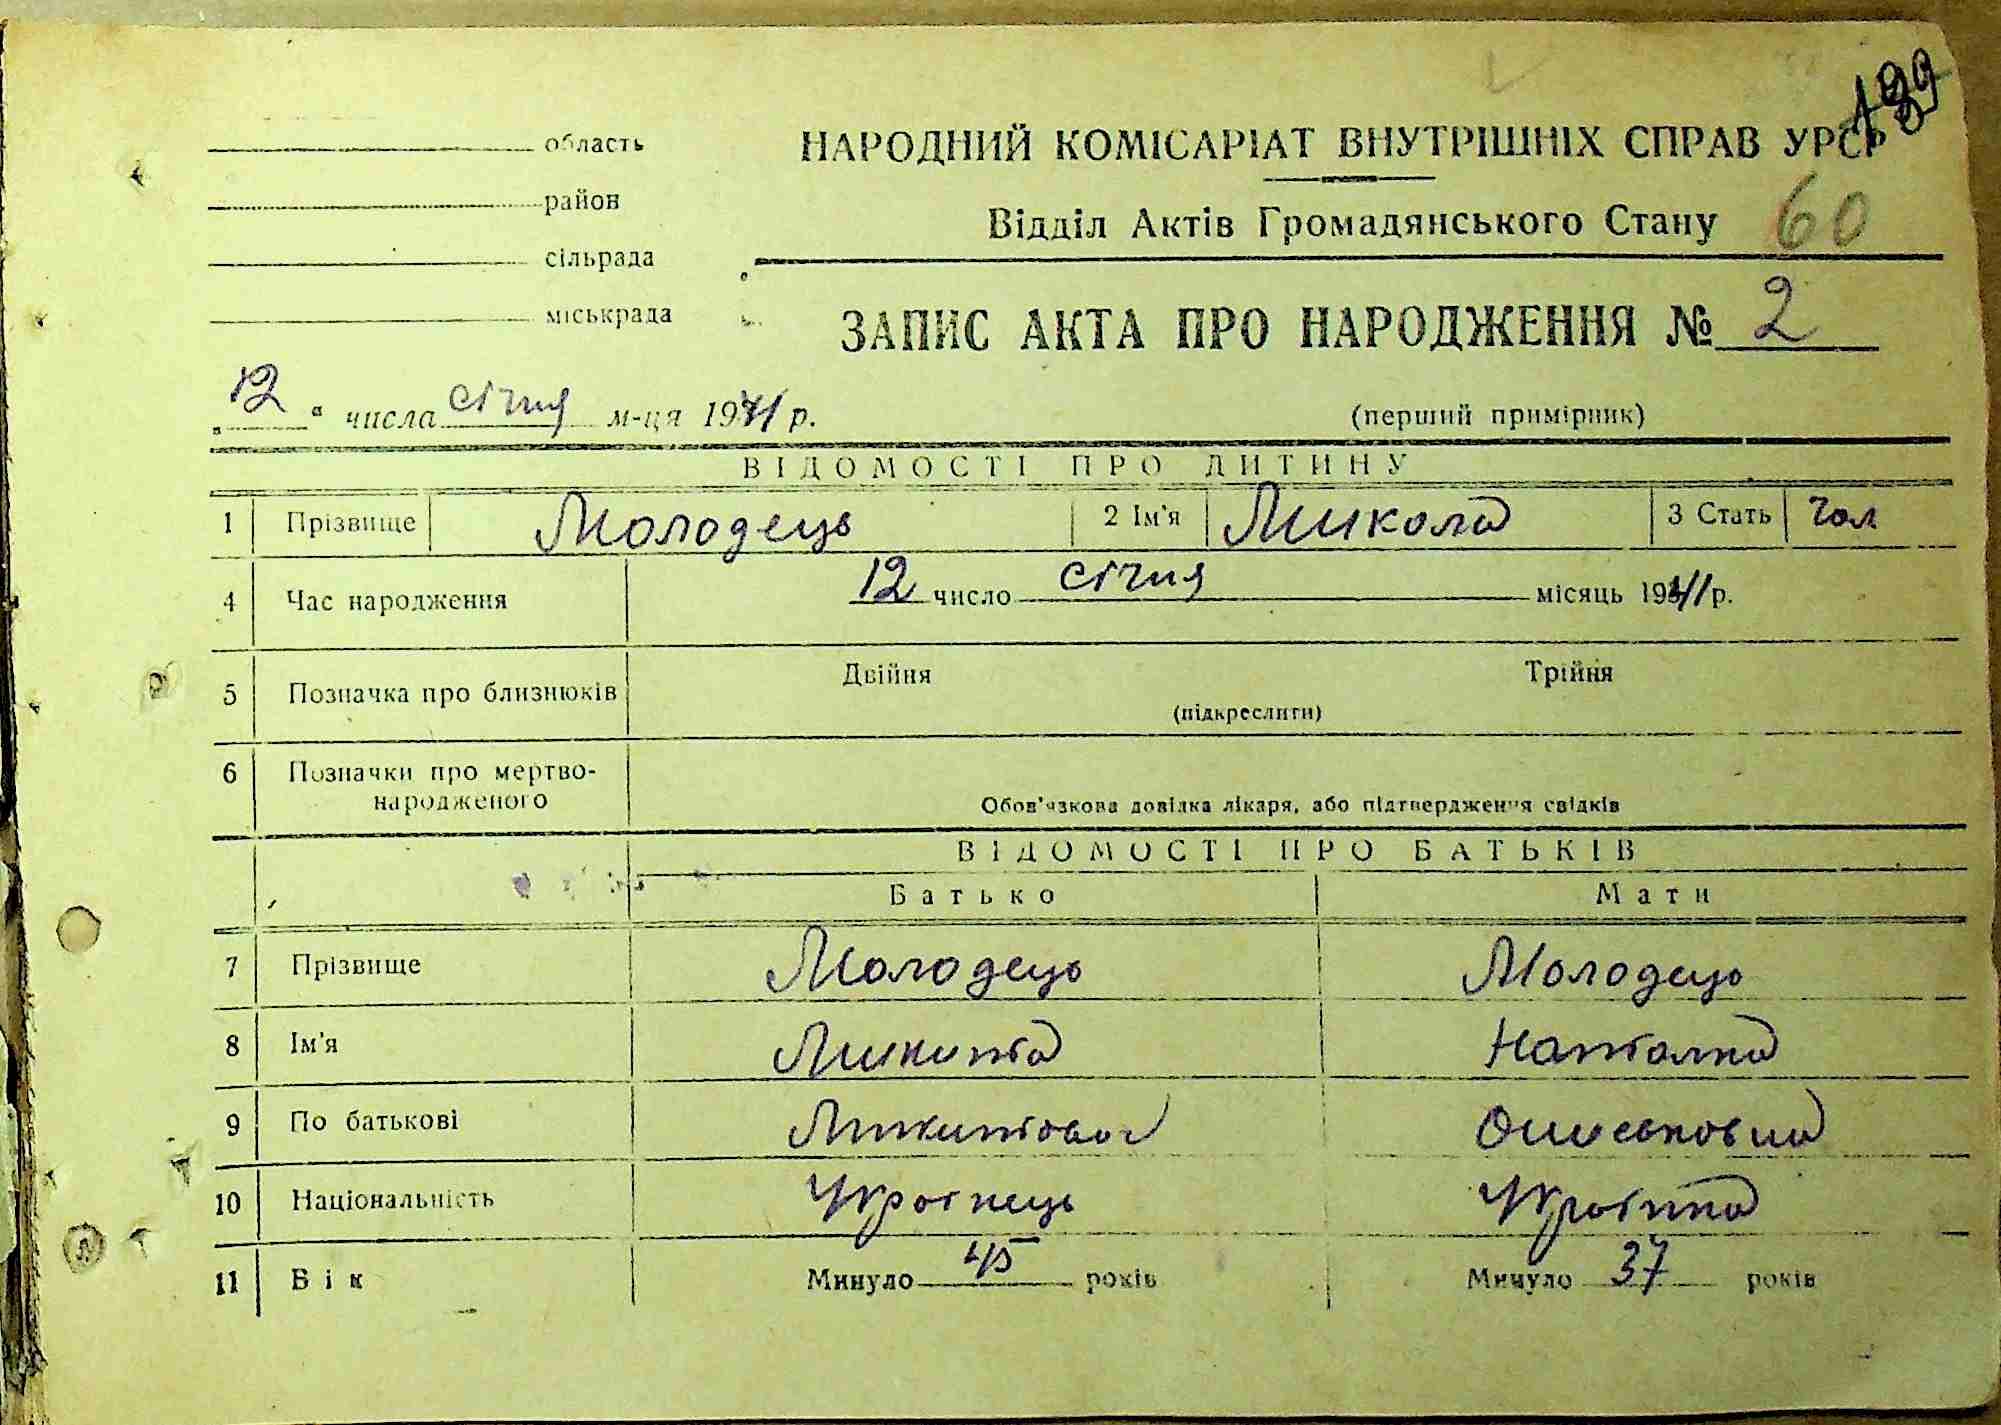 139
область
НАРОДНИЙ КОМІСАРІАТ ВНУТРІШНІХ СПРАВ УРСР
район
Відділ Актів Громадянського Стану 60
сільрада
міськрада
ЗАПИС АКТА ПРО НАРОДЖЕННЯ № 2
„12“ числа січня м-ця 1941 р. (перший примірник)
ВІДОМОСТІ ПРО ДИТИНУ
1 Прізвище Молодець 2 Ім'я Микола 3 Стать чол
4 Час народження 12 число січня місяць 1941 р.
5 Позначка про близнюків Двійня Трійня
(підкреслити)
6 Позначки про мертво-
народженого Обов'язкова довідка лікаря, або підтвердження свідків
ВІДОМОСТІ ПРО БАТЬКІВ
Батько Мати
7 Прізвище Молодець Молодець
8 Ім'я Микита Наталка
9 По батькові Микитович
10 Національність Українець Українка
11 Вік Минуло 45 років Минуло 37 років